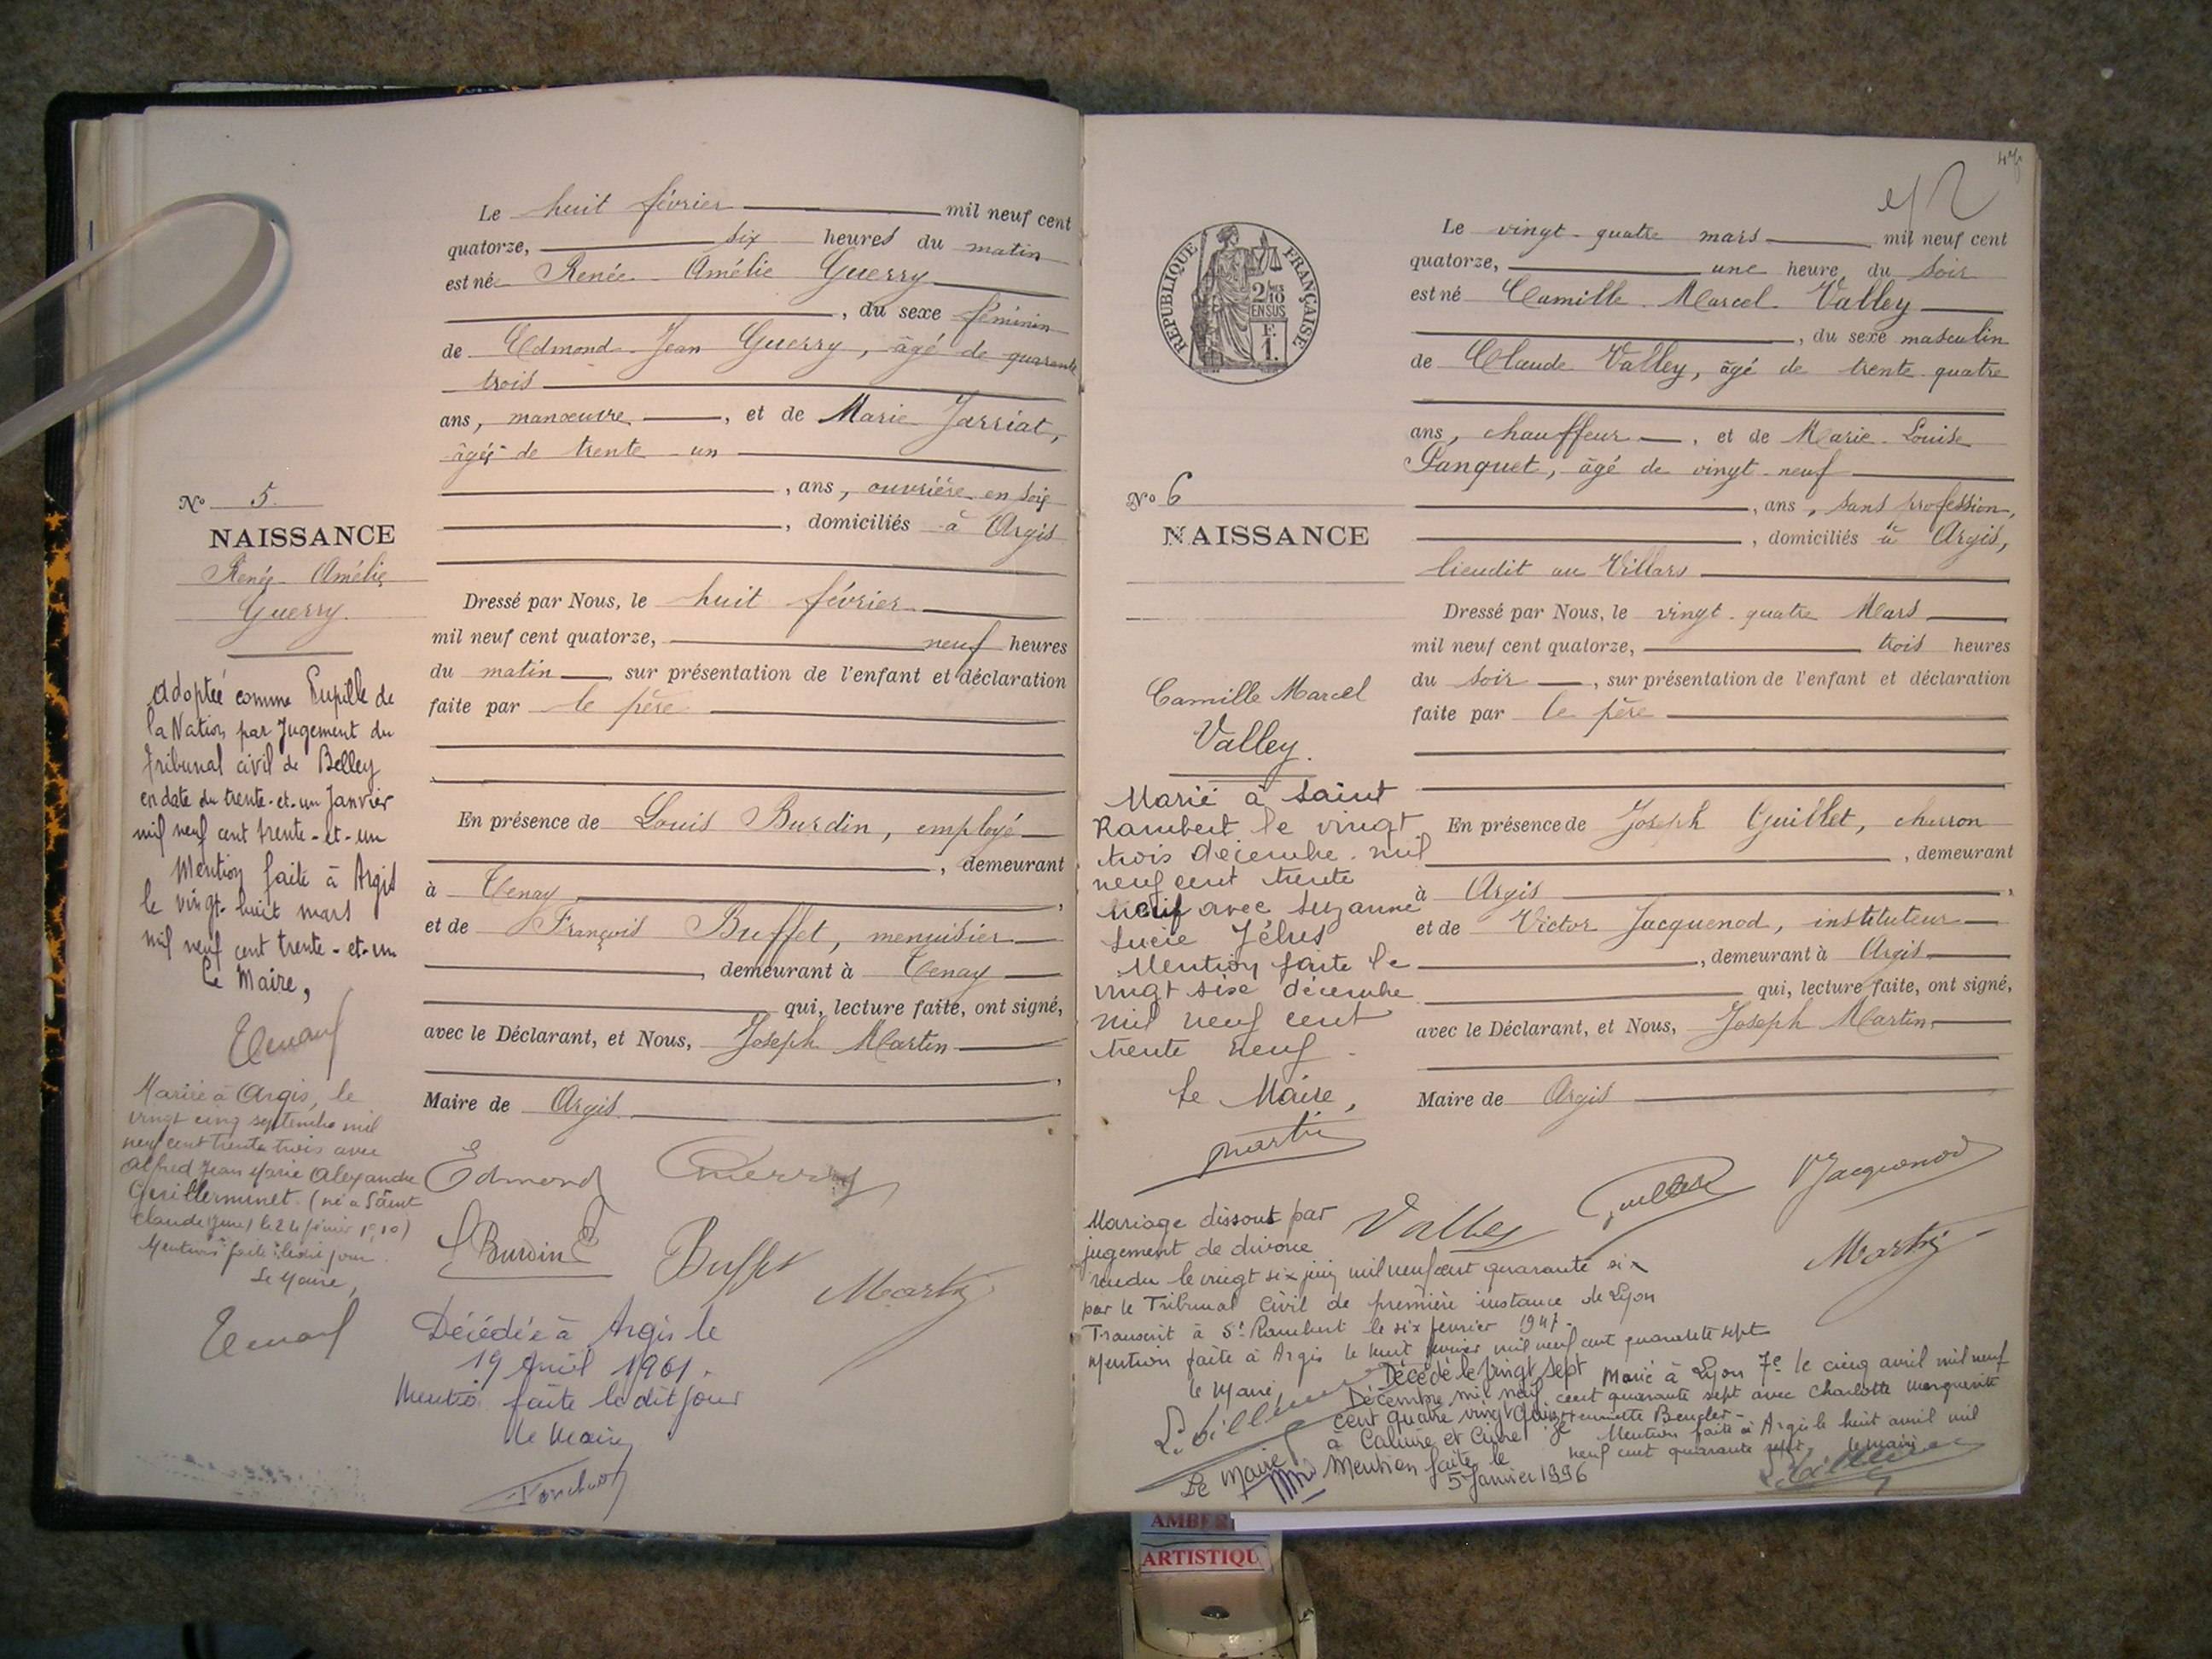 Le huit février mil neuf cent
quatorze, six heures du matin
est née Renée Amélie Guerry
, du sexe féminin
de Edmond Jean Guerry, âgé de quarante
trois
ans, manœuvre, et de Marie Jarriat,
âgée de trente un
, ans, ouvrière en soie
, domiciliés à Argis
Dressé par Nous, le huit février
mil neuf cent quatorze, neuf heures
du matin, sur présentation de l'enfant et déclaration
faite par le père
En présence de Louis Burdin, employé
, demeurant
à Tenay,
et de François Buffet, menuisier
, demeurant à Tenay
qui, lecture faite, ont signé,
avec le Déclarant, et Nous, Joseph Martin
,
Maire de Argis
Edmond Guerry
Burdin Buffet Martin
Décédée à Argis le
19 Avril 1961.
Mention faite le dit jour
Le Maire
No 5.
NAISSANCE
Renée Amélie
Guerry.
Adoptée comme Pupille de
la Nation par Jugement du
tribunal civil de Belley
en date du trente-et-un Janvier
mil neuf cent trente-et-un
Mention faite à Argis
le vingt-huit mars
mil neuf cent trente-et-un
Le Maire,
Mariée à Argis, le
vingt cinq septembre mil
neuf cent trente trois avec
Alfred Jean Marie Alexandre
Guillermet (né à Saint
Claude (Jura) le 24 février 1910)
Mention faite ledit jour.
Le Maire,
Le vingt-quatre mars mil neuf cent
quatorze, une heure du soir
est né Camille Marcel Valley
, du sexe masculin
de Claude Valley, âgé de trente quatre
ans, chauffeur, et de Marie-Louise
Panquet, âgé de vingt-neuf
, ans, sans profession,
, domiciliés à Argis,
lieudit au Villars
Dressé par Nous, le vingt-quatre Mars
mil neuf cent quatorze, trois heures
du soir, sur présentation de l'enfant et déclaration
faite par le père
En présence de Joseph Guillet, charron
, demeurant
à Argis,
et de Victor Jacquenod, instituteur
, demeurant à Argis
qui, lecture faite, ont signé,
avec le Déclarant, et Nous, Joseph Martin,
Maire de Argis
Valley Guillet VJacquenod
Martin
RÉPUBLIQUE FRANÇAISE
2/10
EN SUS
F.
1.
No 6
NAISSANCE
Camille Marcel
Valley.
Marié à Saint
Rambert le vingt
trois décembre mil
neuf cent trente
neuf avec Suzanne
Lucie
Mention faite le
vingt six décembre
mil neuf cent
trente neuf.
Le Maire,
Martin
Mariage dissout par
jugement de divorce
rendu le vingt six juin mil neuf cent quarante six
par le Tribunal Civil de première instance de Lyon
Transcrit à St Rambert le six février 1947.
Mention faite à Argis le huit février mil neuf cent quarante sept
le Maire
Marié à Lyon 7e le cinq avril mil neuf
cent quarante sept avec Charlotte Marguerite
Henriette
Mention faite à Argis le huit avril mil
neuf cent quarante sept. le Maire
Décédé le vingt sept
Décembre mil neuf
cent quatre vingt quinze
à Caluire et Cuire
Mention faite le
5 Janvier 1996
Le Maire
AMBER
ARTISTIQU